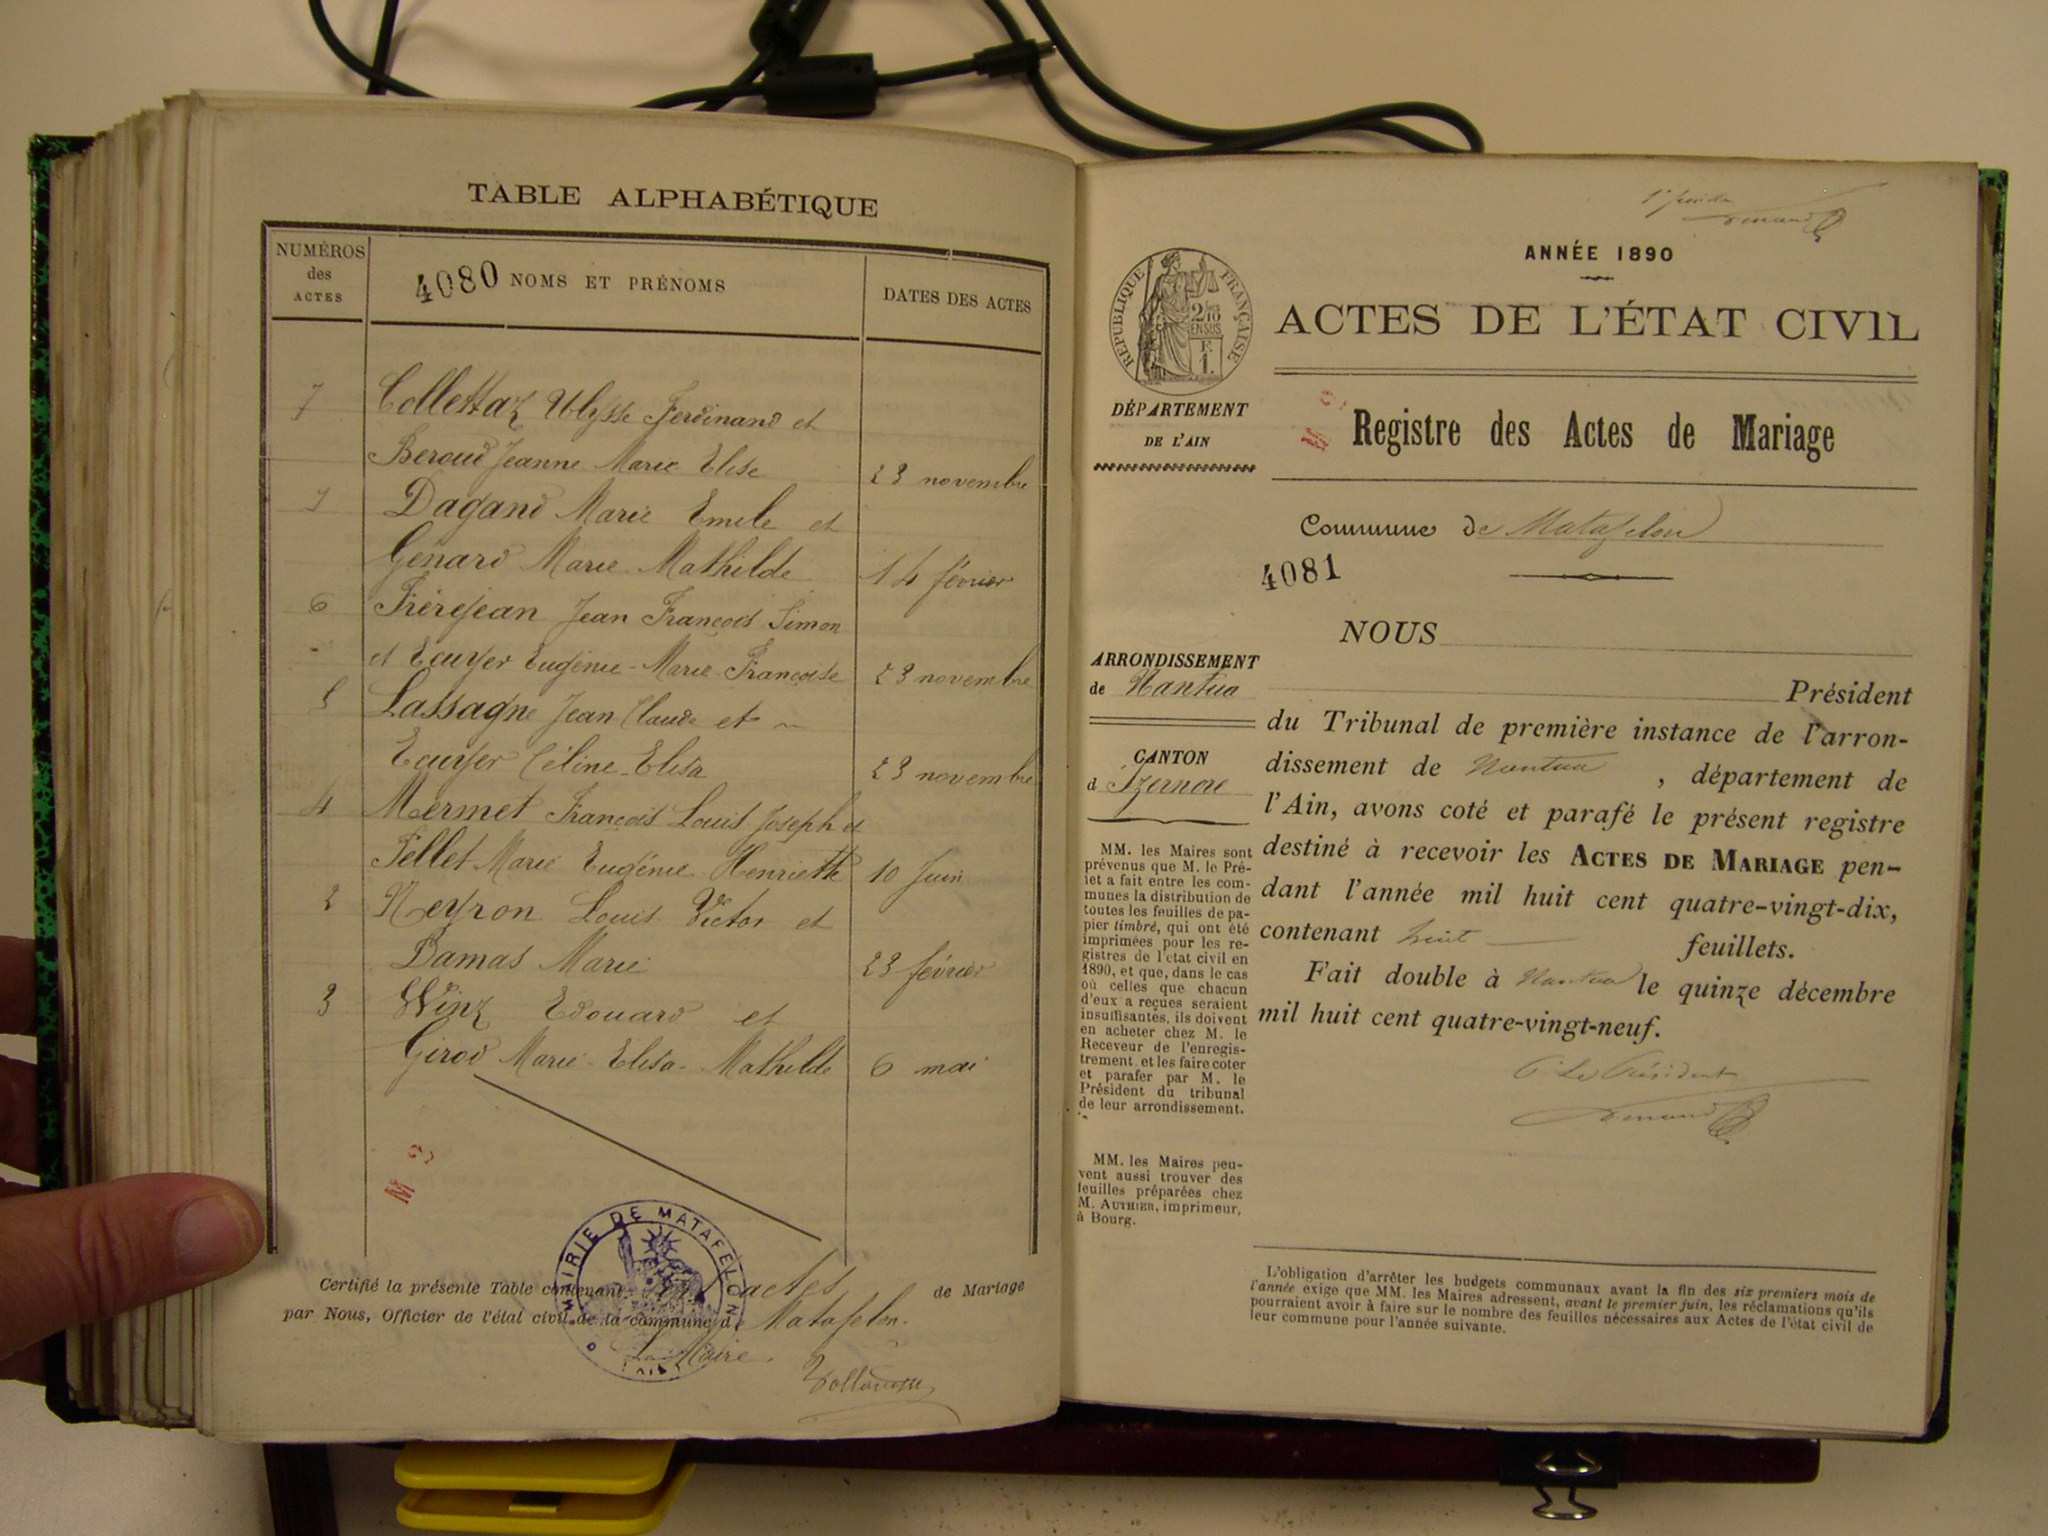 TABLE ALPHABÉTIQUE
NUMÉROS des ACTES
4080 NOMS ET PRÉNOMS
DATES DES ACTES
7 Collettaz Ulysse Ferdinand et
Beroud Jeanne Marie Elise 23 novembre
1 Dagand Marie Emile et
Genard Marie Mathilde 14 février
6 Frèrejean Jean François Simon
et Ecuyer Eugénie-Marie-Françoise 23 novembre
5 Lassagne Jean Claude et
Ecuyer Céline-Elisa 23 novembre
4 Mermet François Louis Joseph et
Pellet Marie Eugénie Henriette 10 Juin
2 Neyron Louis Victor et
Damas Marie 23 février
3 Winz Edouard et
Girod Marie-Elisa-Mathilde 6 mai
MAIRIE DE MATAFELON
Certifié la présente Table contenant actes de Mariage
par Nous, Officier de l'état civil de la commune de Matafelon.
Le Maire.
ANNÉE 1890
RÉPUBLIQUE FRANÇAISE
ACTES DE L'ÉTAT CIVIL
DÉPARTEMENT
DE L'AIN
Registre des Actes de Mariage
Commune de Matafelon
4081
NOUS
ARRONDISSEMENT
de Nantua
CANTON
d Izernore
MM. les Maires sont
prévenus que M. le Pré-
fet a fait entre les com-
munes la distribution de
toutes les feuilles de pa-
pier timbré, qui ont été
imprimées pour les re-
gistres de l'état civil en
1890, et que, dans le cas
où celles que chacun
d'eux a reçues seraient
insuffisantes, ils doivent
en acheter chez M. le
Receveur de l'enregis-
trement et les faire coter
et parafer par M. le
Président du tribunal
de leur arrondissement.
MM. les Maires peu-
vent aussi trouver des
feuilles préparées chez
M. AUTHIER, imprimeur,
à Bourg.
Président
du Tribunal de première instance de l'arron-
dissement de Nantua , département de
l'Ain, avons coté et parafé le présent registre
destiné à recevoir les ACTES DE MARIAGE pen-
dant l'année mil huit cent quatre-vingt-dix,
contenant huit feuillets.
Fait double à Nantua le quinze décembre
mil huit cent quatre-vingt-neuf.
Le Président
L'obligation d'arrêter les budgets communaux avant la fin des six premiers mois de
l'année exige que MM. les Maires adressent, avant le premier juin, les réclamations qu'ils
pourraient avoir à faire sur le nombre des feuilles nécessaires aux Actes de l'état civil de
leur commune pour l'année suivante.